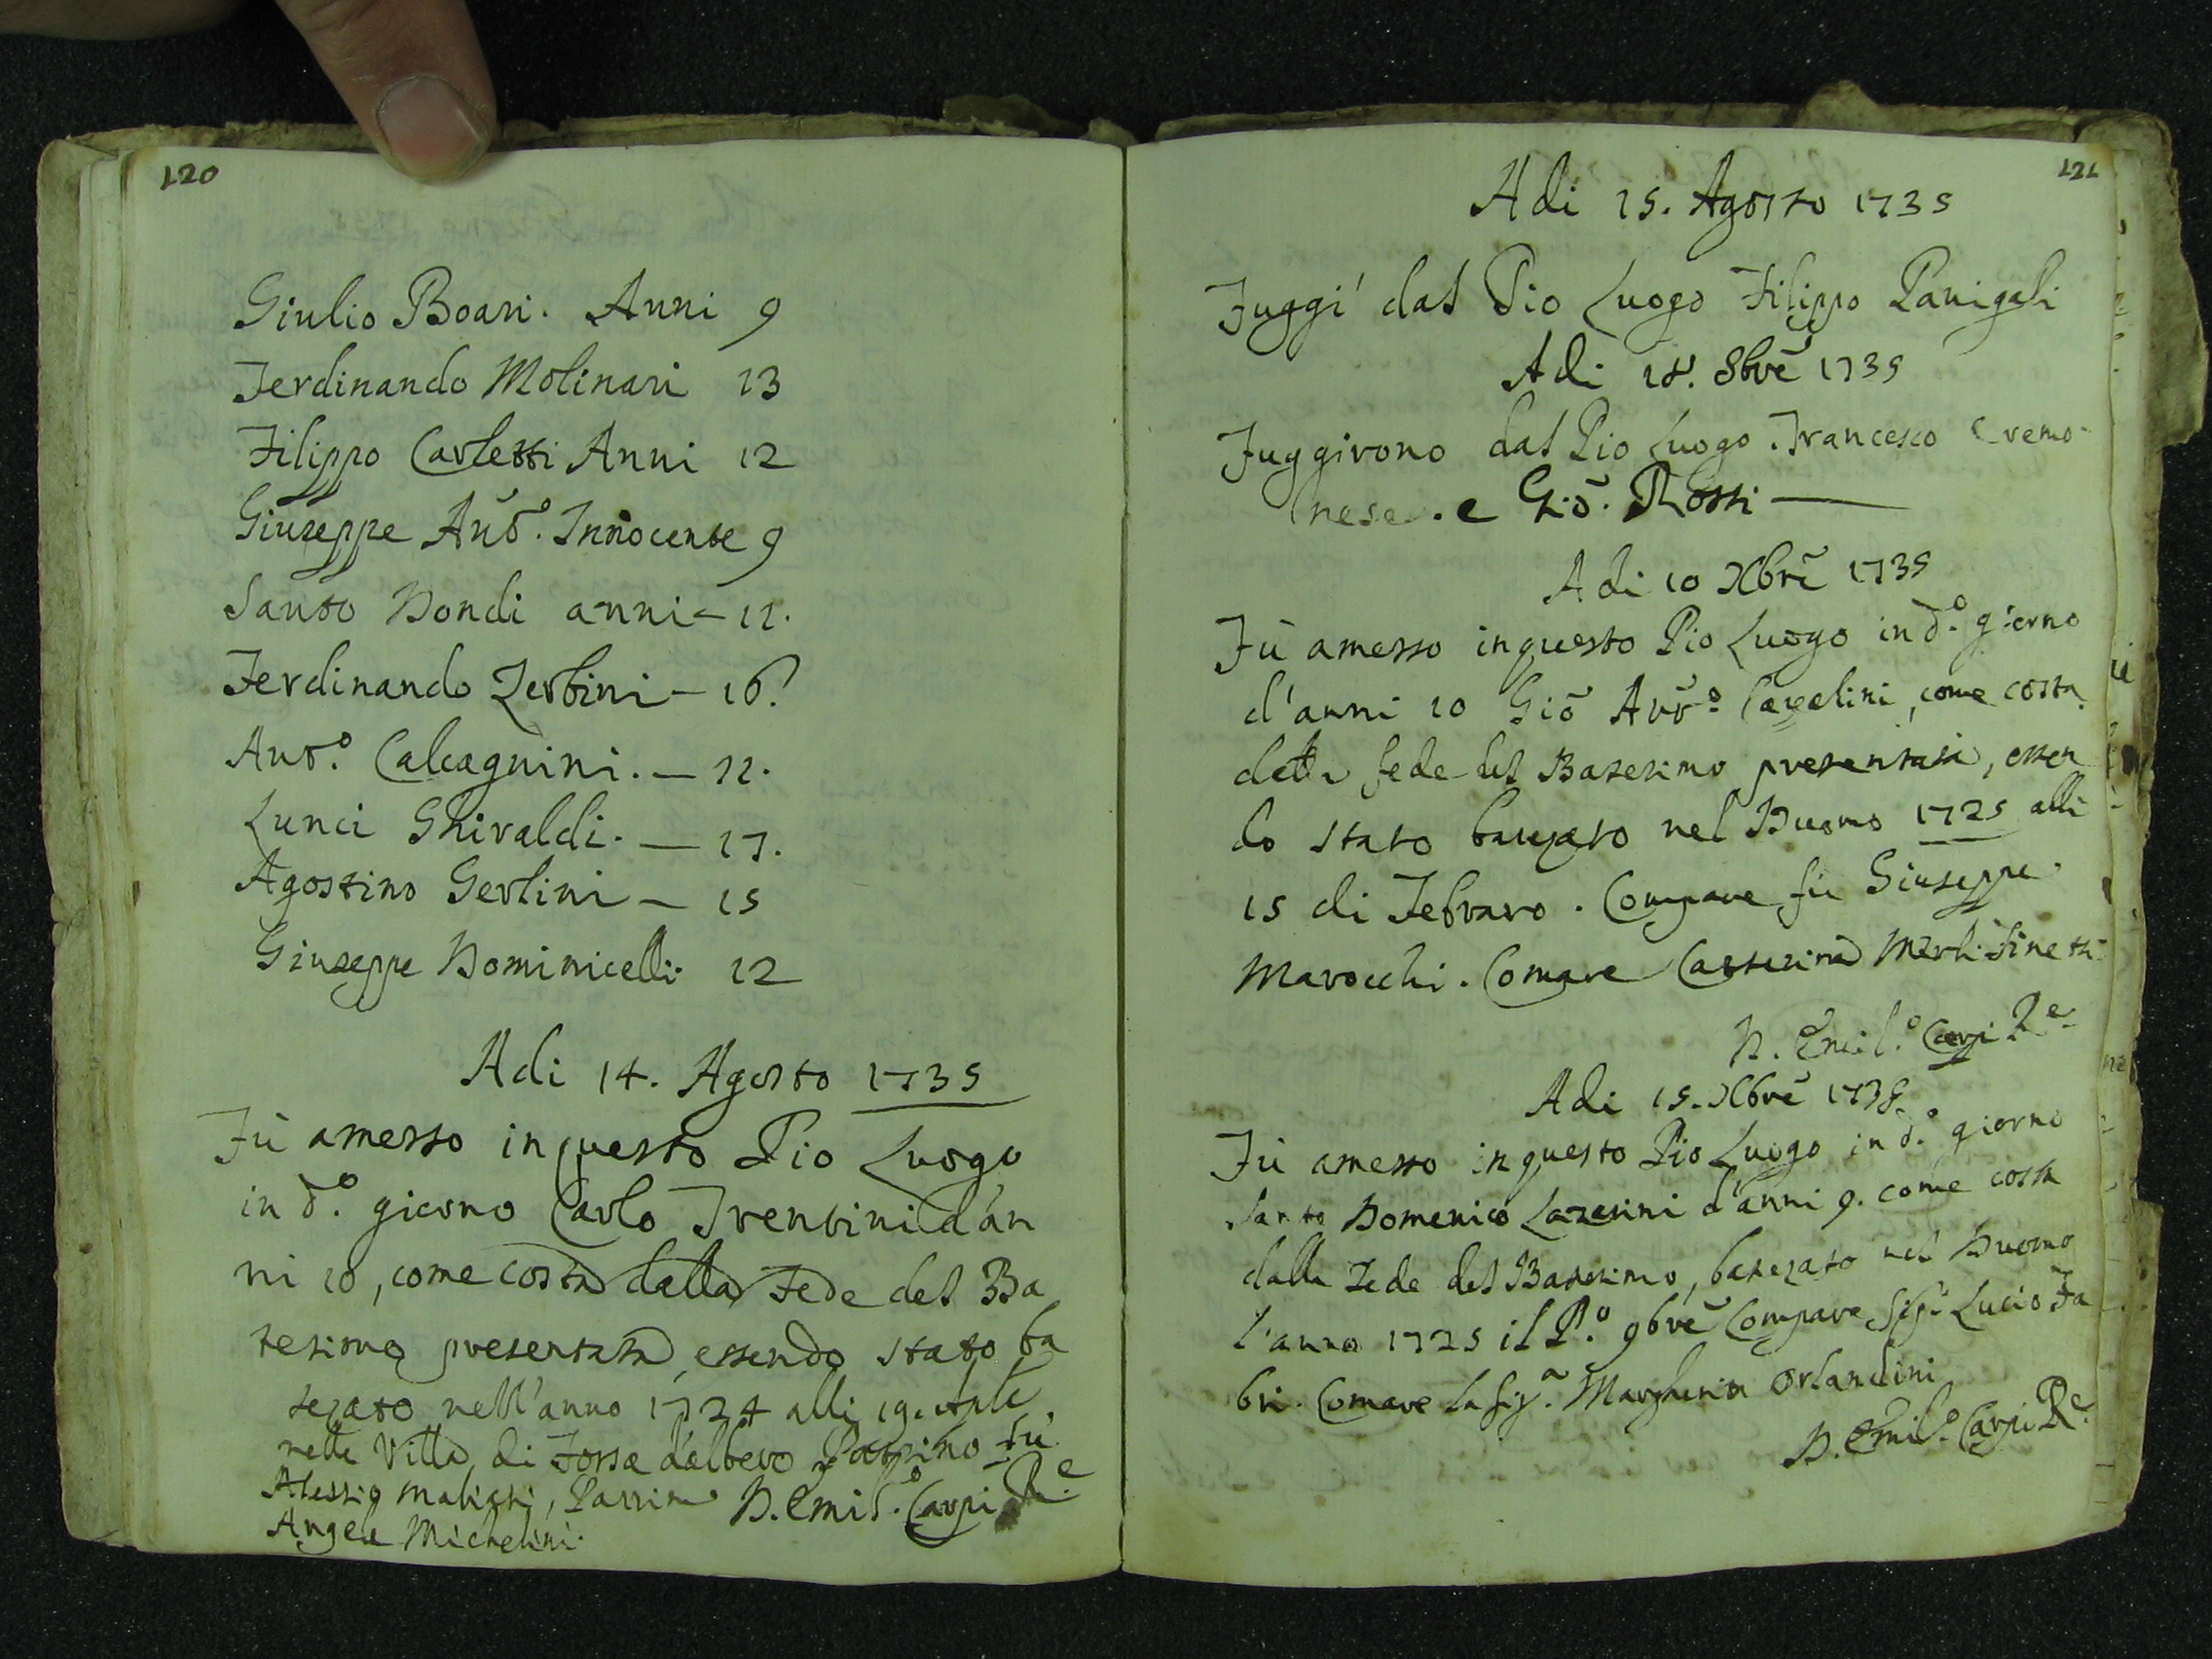 120
Giulio Boari. Anni 9
Ferdinando Molinari 13
Filippo Carletti Anni 12
Giuseppe Antº. Innocente 9
Santo Bondi anni - 12.
Ferdinando Zerbini - 16?
Antº. Calcagnini. - 12.
Lunci Ghivaldi. - 17.
Agostino Gerlini - 15
Giuseppe Dominicelli 12
Adi 14. Agosto 1735
Fù amesso in questo Pio Luogo
in dº. giorno Carlo Trentini d'an
ni 10, come costa dalla Fede del Ba
tesimo presentata, essendo stato ba
tezato nell'anno 1724 alli 19.
nella Villa di Fossa d'albero Patrino fù
Alessio Maliati, Patrina D. Emilº. Carpi Re.
Angela Michelini.
121
Adi 15. Agosto 1735
Fuggi' dal Pio Luogo Filippo Panigali
Adi 18. 8brē 1735
Fuggirono dal Pio Luogo. Francesco Cremo-
nese. e Giō. Rossi
Adi 10 Xbrē 1735
Fù amesso in questo Pio Luogo in dº. giorno
d'anni 10 Giō Antº. Cavalini, come costa
dalla fede del Batesimo presentata, essen
do stato batezato nel Duomo 1725 alli
15 di Febraro. Compare fu Giuseppe
Marocchi. Comare Catterina Merli
D. Emilº. Carpi Re.
Adi 15. Xbrē 1735.
Fù amesso in questo Pio Luogo in dº. giorno
Santo Domenico Lazarini d'anni 9. come costa
dalla Fede del Batesimo, batezato nel Duomo
l'anno 1725 il Pº. 9brē Compare Sigr. Lucio Fa
bri. Comare la Sigª. Margherita Orlandini
D. Emilº. Carpi Re.